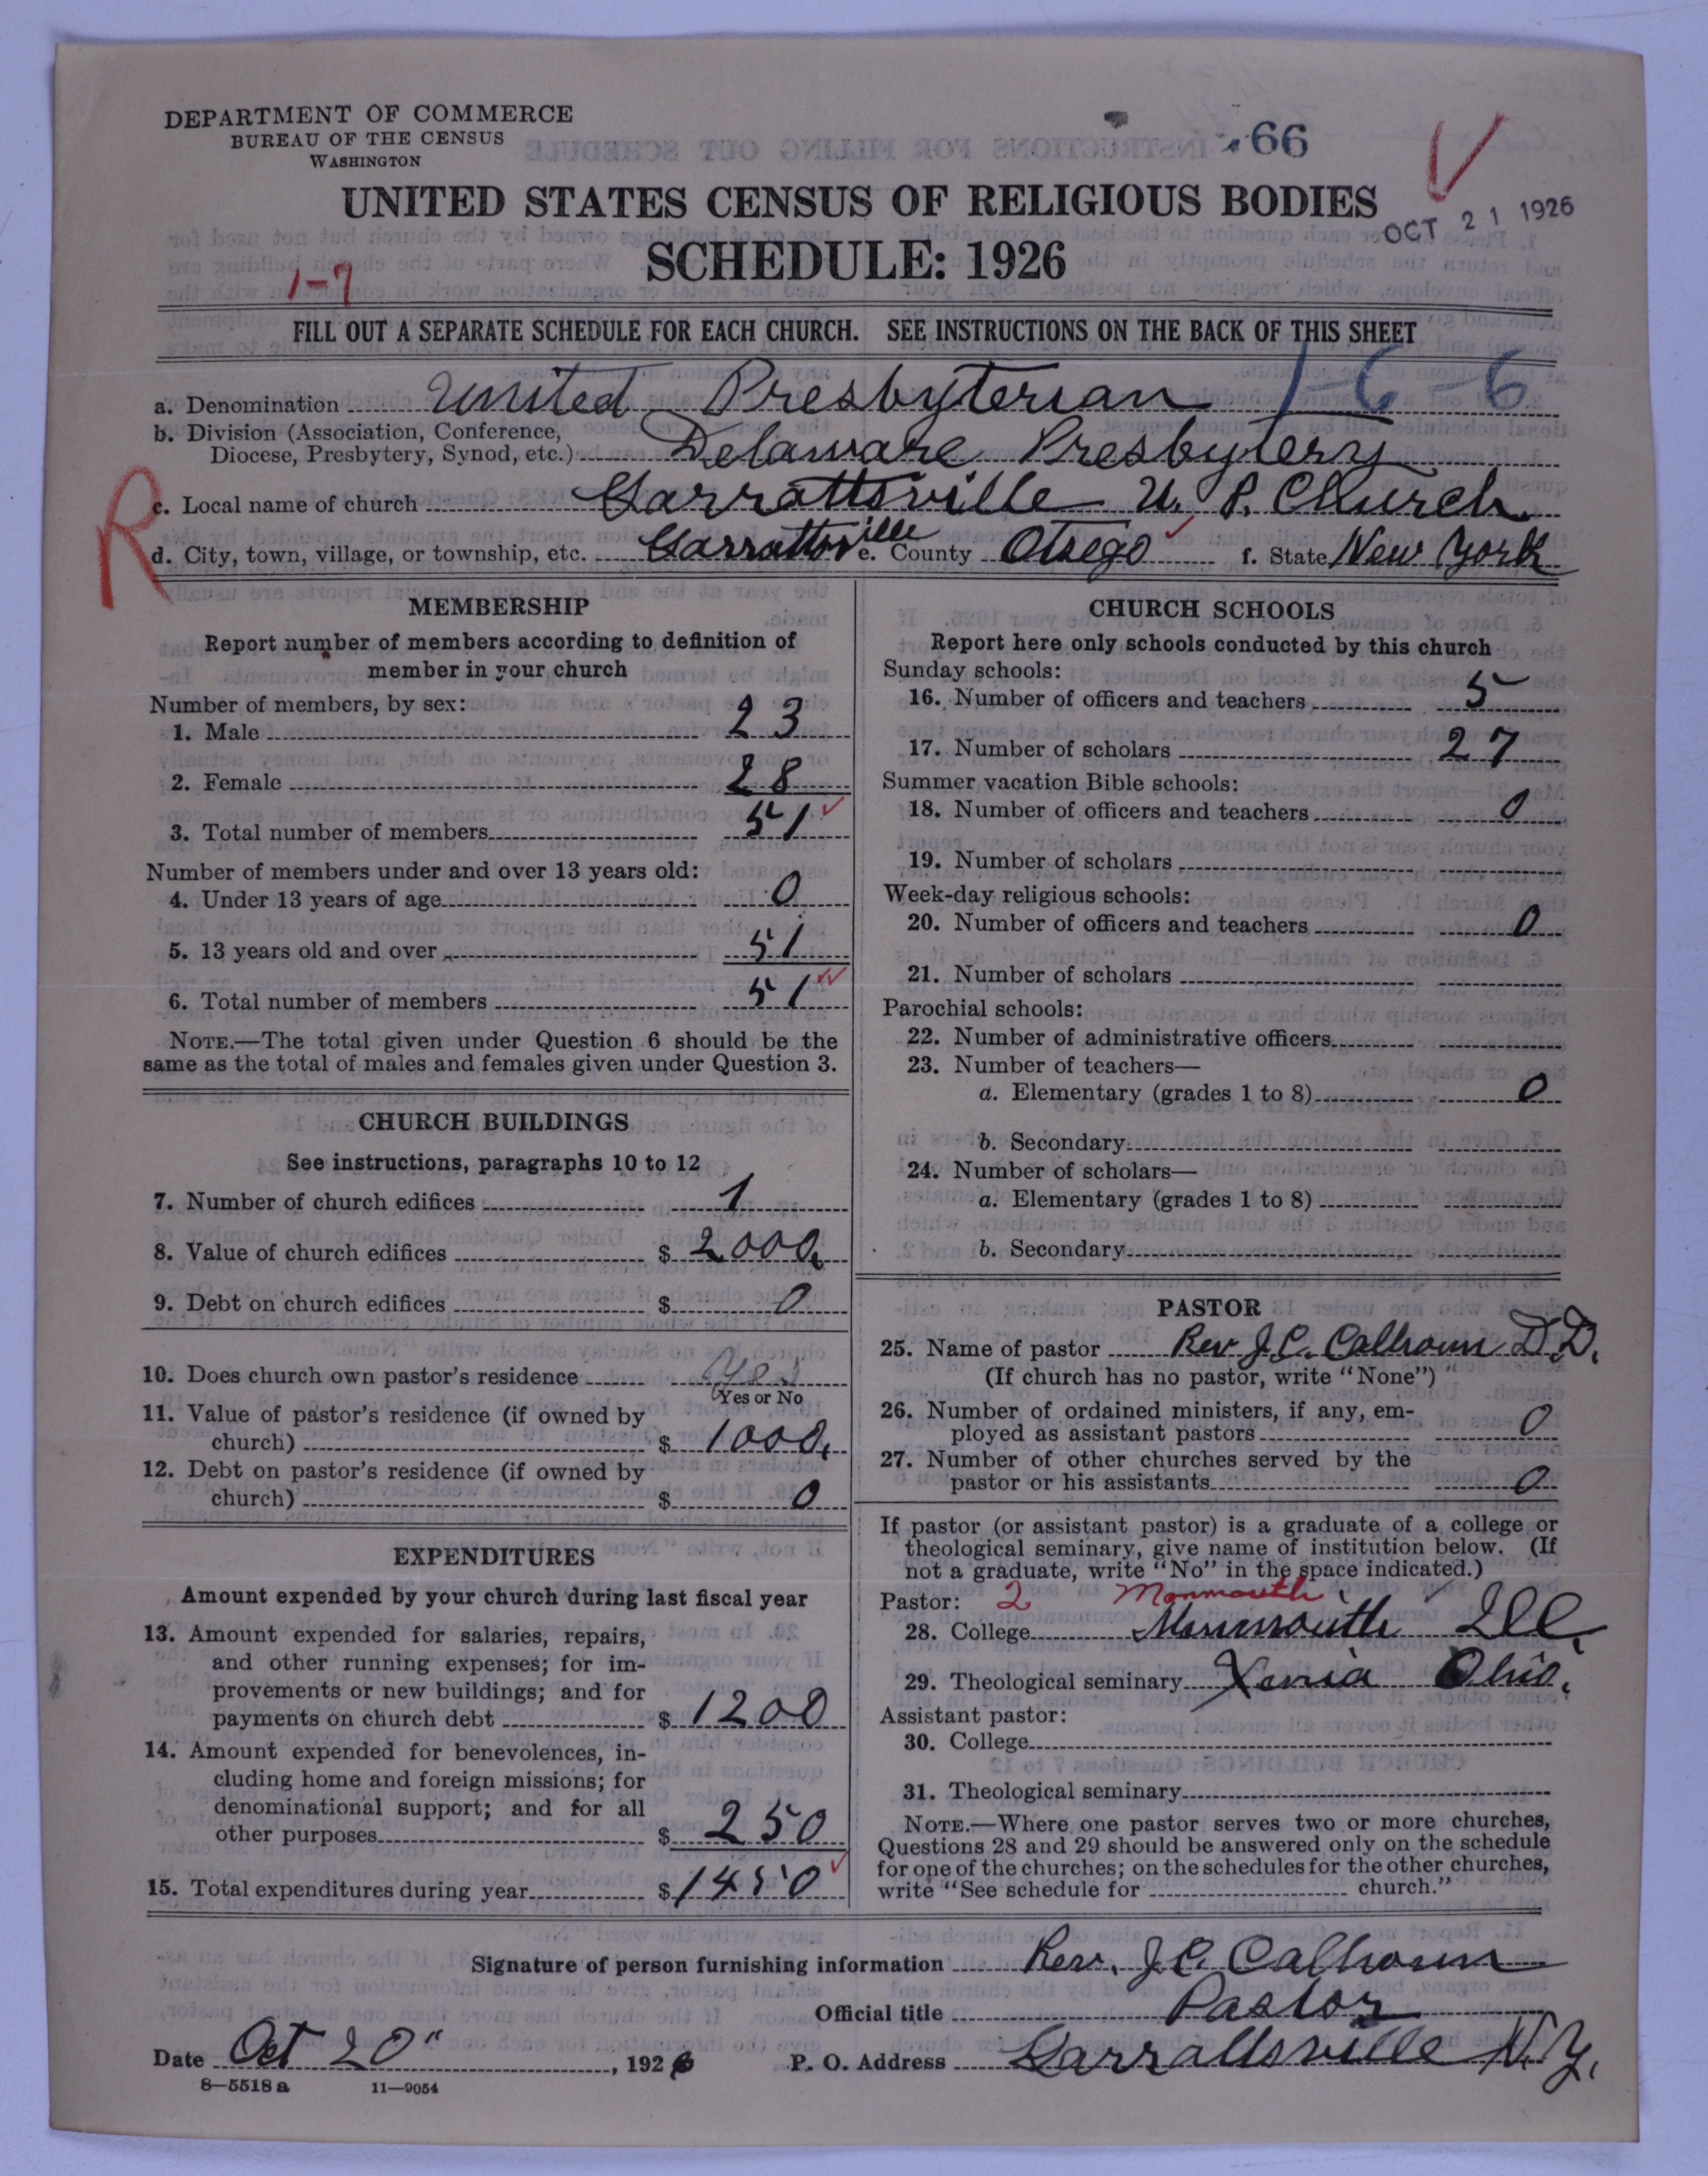 DEPARTMENT OF COMMERCE
BUREAU OF THE CENSUS
WASHINGTON
66
UNITED STATES CENSUS OF RELIGIOUS BODIES
OCT 21 1926
SCHEDULE: 1926
1-7
FILL OUT A SEPARATE SCHEDULE FOR EACH CHURCH. SEE INSTRUCTIONS ON THE BACK OF THIS SHEET
a. Denomination United Presbyterian 1-6-6
b. Division (Association, Conference,
Diocese, Presbytery, Synod, etc.) Delaware Presbytery
R
c. Local name of church Garrattsville U. P. Church
d. City, town, village, or township, etc. Garrattsville e. County Otsego f. State New York
MEMBERSHIP
Report number of members according to definition of
member in your church
Number of members, by sex:
1. Male 23
2. Female 28
3. Total number of members 51
Number of members under and over 13 years old:
4. Under 13 years of age 0
5. 13 years old and over 51
6. Total number of members 51
NOTE.—The total given under Question 6 should be the
same as the total of males and females given under Question 3.
CHURCH BUILDINGS
See instructions, paragraphs 10 to 12
7. Number of church edifices 1
8. Value of church edifices $ 2000.
9. Debt on church edifices $ 0
10. Does church own pastor's residence Yes
Yes or No
11. Value of pastor's residence (if owned by
church) $ 1000.
12. Debt on pastor's residence (if owned by
church) $ 0
EXPENDITURES
Amount expended by your church during last fiscal year
13. Amount expended for salaries, repairs,
and other running expenses; for im-
provements or new buildings; and for
payments on church debt $ 1200
14. Amount expended for benevolences, in-
cluding home and foreign missions; for
denominational support; and for all
other purposes $ 250
15. Total expenditures during year $ 1450
CHURCH SCHOOLS
Report here only schools conducted by this church
Sunday schools:
16. Number of officers and teachers 5
17. Number of scholars 27
Summer vacation Bible schools:
18. Number of officers and teachers 0
19. Number of scholars
Week-day religious schools:
20. Number of officers and teachers 0
21. Number of scholars
Parochial schools:
22. Number of administrative officers
23. Number of teachers—
a. Elementary (grades 1 to 8) 0
b. Secondary
24. Number of scholars—
a. Elementary (grades 1 to 8)
b. Secondary
PASTOR
25. Name of pastor Rev J. C. Calhoun D.D.
(If church has no pastor, write "None")
26. Number of ordained ministers, if any, em-
ployed as assistant pastors 0
27. Number of other churches served by the
pastor or his assistants 0
If pastor (or assistant pastor) is a graduate of a college or
theological seminary, give name of institution below. (If
not a graduate, write "No" in the space indicated.)
Pastor: 2 Monmouth
28. College Monmouth Ill.
29. Theological seminary Xenia Ohio.
Assistant pastor:
30. College
31. Theological seminary
NOTE.—Where one pastor serves two or more churches,
Questions 28 and 29 should be answered only on the schedule
for one of the churches; on the schedules for the other churches,
write "See schedule for church."
Signature of person furnishing information Rev. J C Calhoun
Official title Pastor
Date Oct 20", 1926 P. O. Address Garrattsville N. Y.
8—5518 a 11—9054